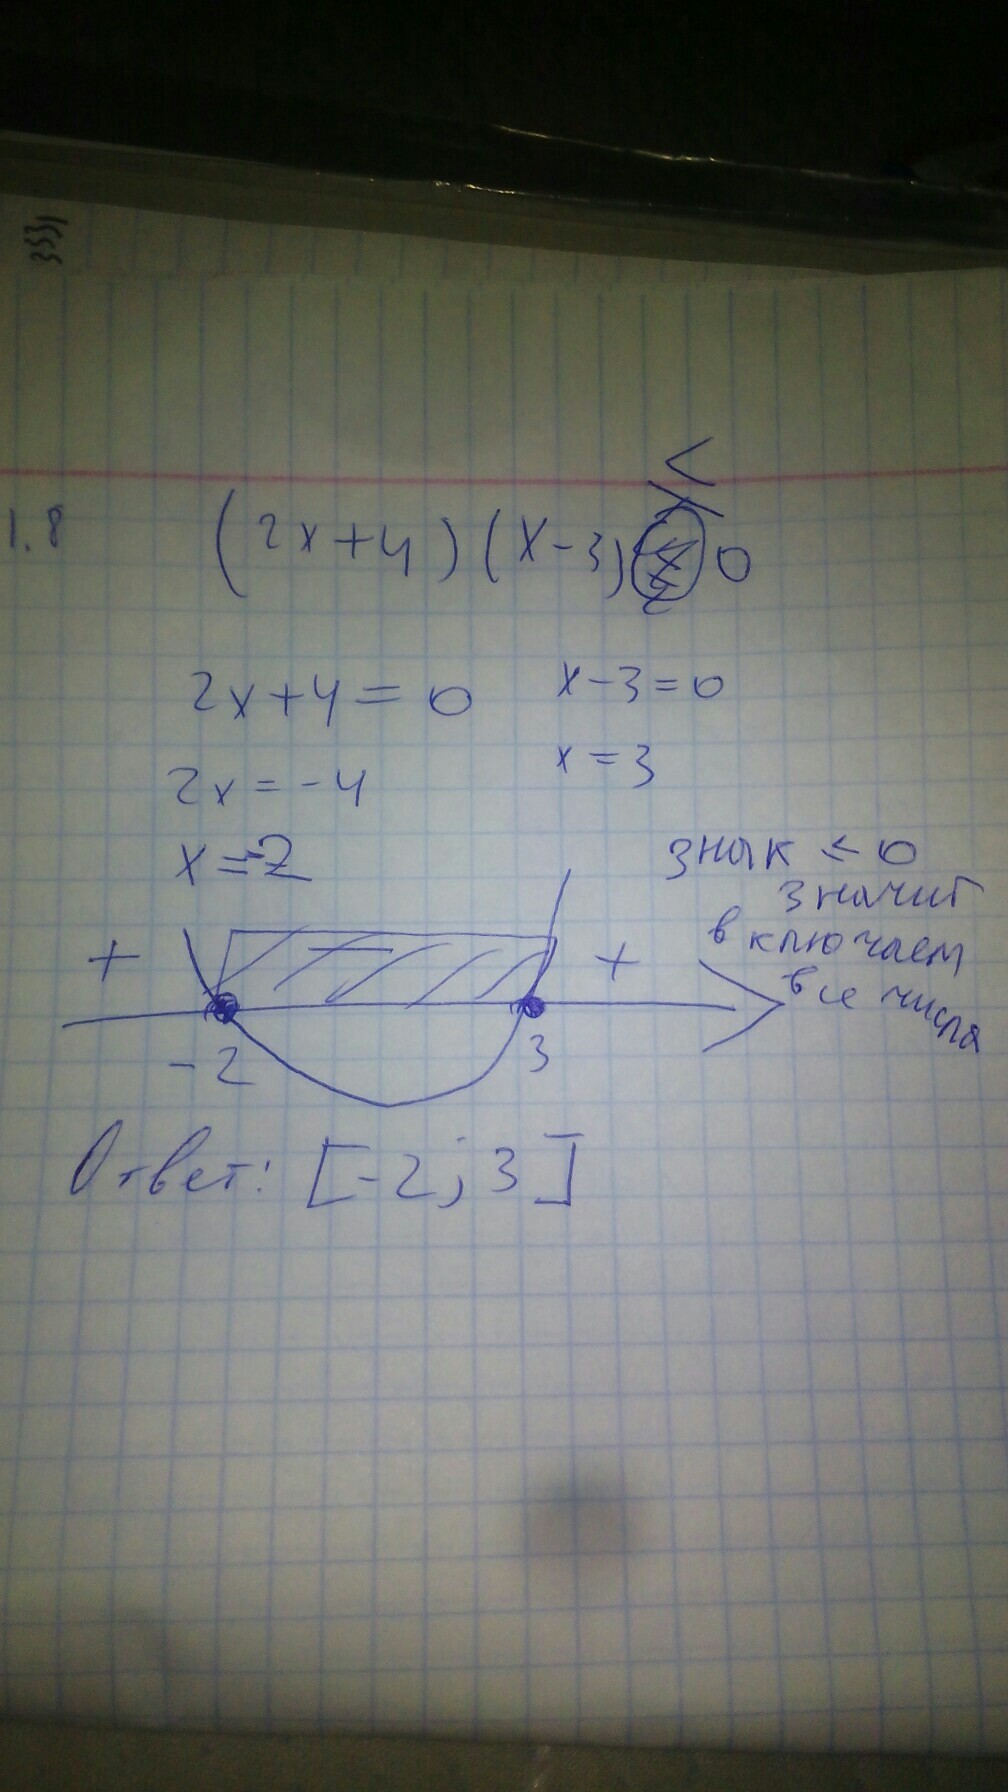 1.8 (2x+4)(x-3) ≤ 0
2x+4=0 x-3=0
2x=-4 x=3
x=-2
знак ≤ 0
значит
включаем
все числа
+ − +
-2 3
Ответ: [-2; 3]